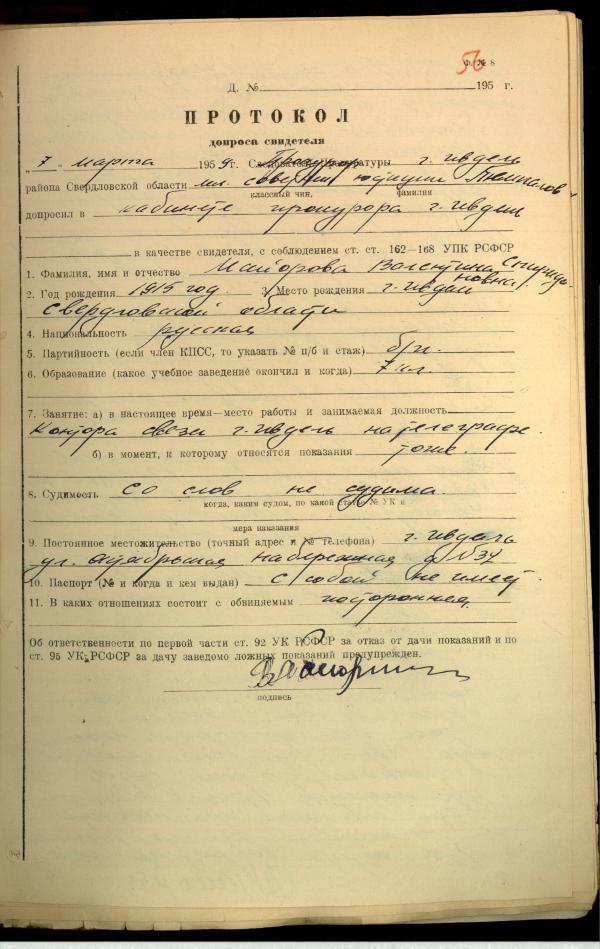 56
Ф. № 8
Д. № 195 г.
ПРОТОКОЛ
допроса свидетеля
„7“ марта 1959 г. Следователь прокуратуры г. Ивдель
района Свердловской области мл. советник юстиции Темпалов
классный чин, фамилия
допросил в кабинете прокурора г. Ивдель
в качестве свидетеля, с соблюдением ст. ст. 162—168 УПК РСФСР
1. Фамилия, имя и отчество Майорова Валентина
2. Год рождения 1915 год. 3. Место рождения г. Ивдель
Свердловской области
4. Национальность русская
5. Партийность (если член КПСС, то указать № п/б и стаж) б/п.
6. Образование (какое учебное заведение окончил и когда) 7 кл.
7. Занятие: а) в настоящее время—место работы и занимаемая должность
Контора связи г. Ивдель на телеграфе.
б) в момент, к которому относятся показания тоже.
8. Судимость со слов не судима.
когда, каким судом, по какой статье № УК и
мера наказания
9. Постоянное местожительство (точный адрес и № телефона) г. Ивдель
ул. Октябрьская набережная д №34
10. Паспорт (№ и когда и кем выдан) с собой не имеет.
11. В каких отношениях состоит с обвиняемым посторонняя.
Об ответственности по первой части ст. 92 УК РСФСР за отказ от дачи показаний и по
ст. 95 УК РСФСР за дачу заведомо ложных показаний предупрежден.
подпись